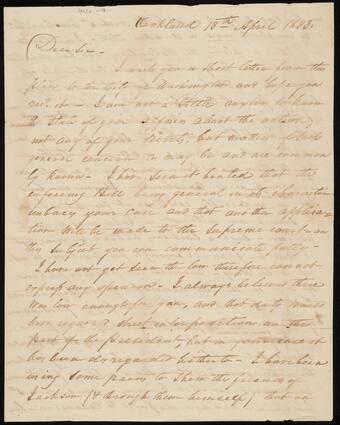 Oakland 13th April 1833.
Dear Sir -
I wrote you a short letter from this
place to the City of Washington and hope you
rec. it - I am not a little anxious to know
the State of your affairs about the nation,
not any of your Secrets, but matters which
general concern or may be and are common
ly known - I have seen it hinted that the
enforcing Bill being general in its character
embrace your case and that another applica-
tion will be made to the Supreme court - on
this subject you can communicate fully -
I have not yet seen the law therefore can not
express any opinion - I always believed there
was law enough for you, and that duty would
have required Street in corporation on the
part of the president, but in your case it
has been disregarded hitherto - I have been
using some pains to show the friends of
Jackson (& through them himself) that an